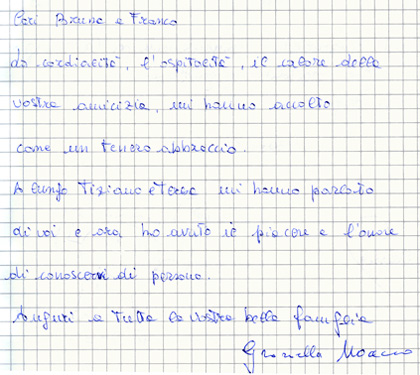 Cari Bruna e Franco
la cordialità, l'ospitalità, il calore della
vostra amicizia, mi hanno accolto
come un tenero abbraccio.
A lungo Tiziano e mi hanno parlato
di voi e ora ho avuto il piacere e l'onore
di conoscervi di persona.
Auguri a tutta la vostra bella famiglia
Graziella